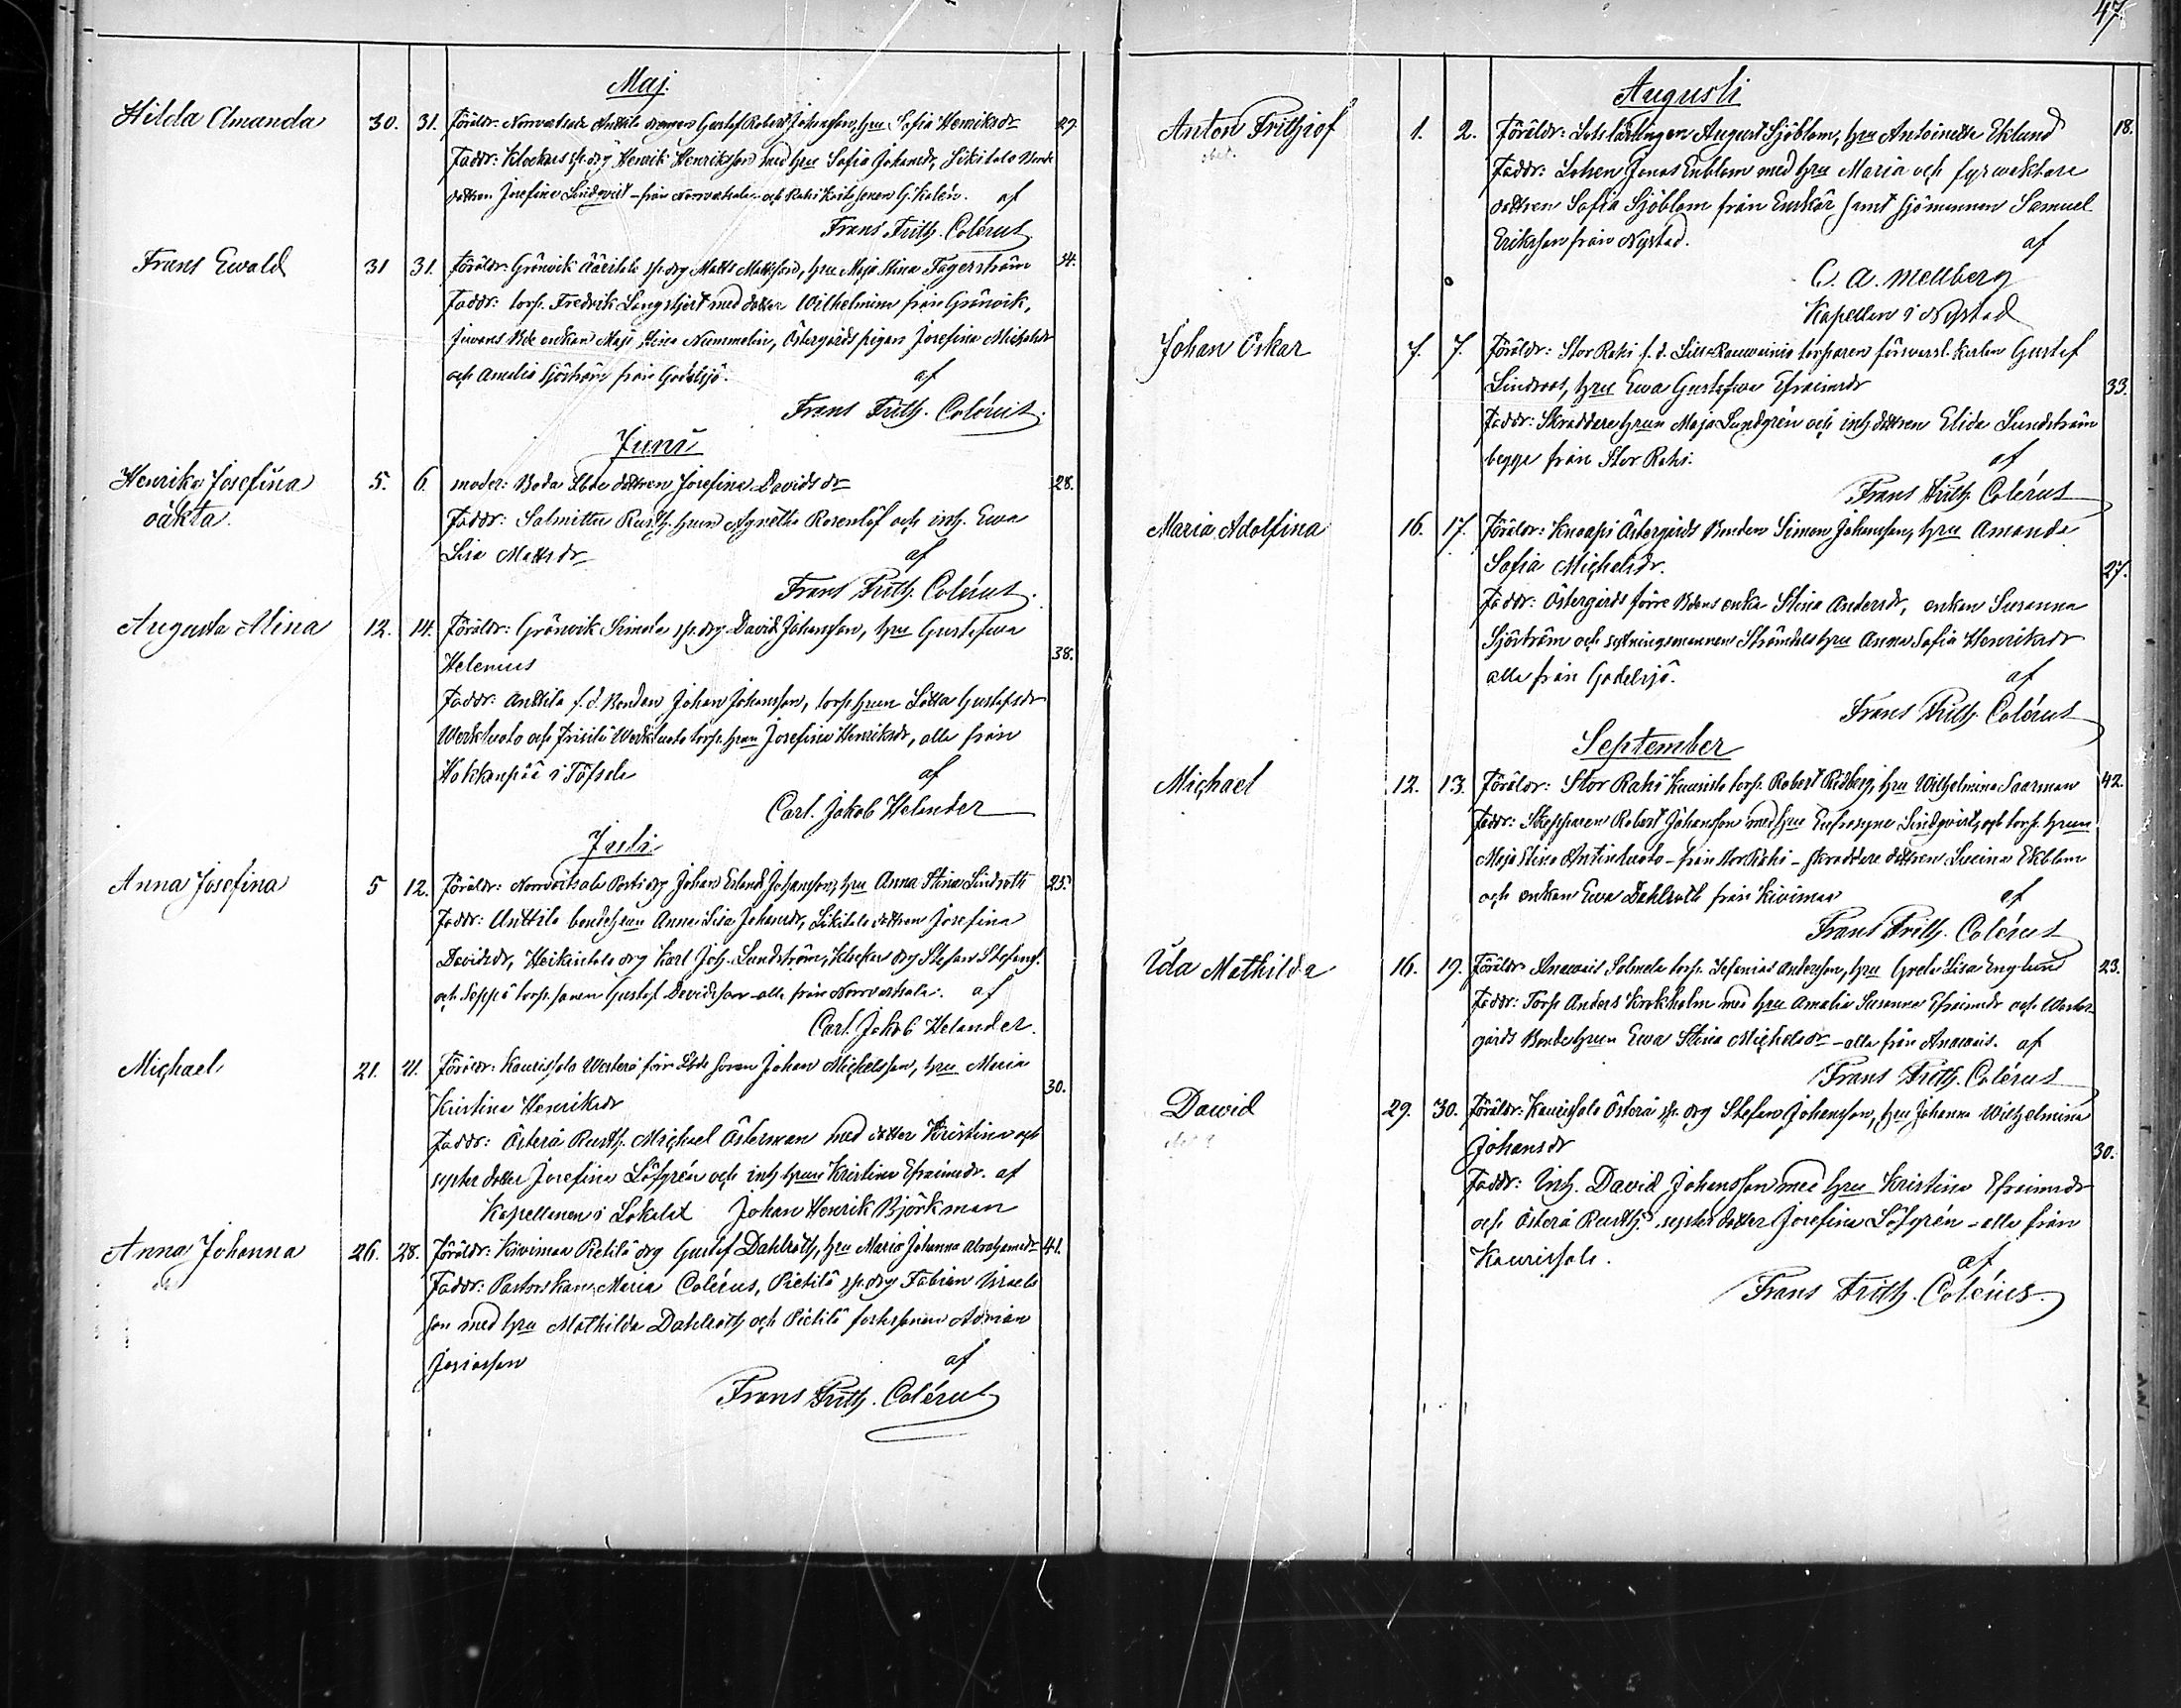 47.
Maj.
Hilda Amanda 30. 31. Föräldr: Norrvatsala Anttila drangen Gustaf Robert Johansson, hru Sofia Henriksdr 29.
Faddr: Klockars sp.drg Henrik Henriksson med hru Sofia Johansdr, Likitalo
dottren Josefina Lindqvist – från Norrvatsala och Rahi G. Kalén. af
Frans Frith. Colérus.
Frans Ewald 31 31. Föräldr: Grönvik Ääritalo sp.drg Matts Mattsson, hru Maja Stina Fagerström 34.
Faddr: torp. Fredrik Långstjert med dotter Wilhelmina från Grönvik,
Juvans Bde enkan Maja Stina Nummelin, Östergårds pigan Josefina Michelsdr
och Amalia Sjöström från Godelsjö. af
Frans Frith. Colérus.
Juni
Henrika Josefina 5. 6. moder: Boda Bde dottren Josefina Davidsdr 28.
oäkta. Faddr: Salmittu Rusth. hrun Agnetha Rosenlöf och inh. Ewa
Lisa Mattsdr af
Frans Frith. Colérus.
Augusta Alina 12. 14. Föräldr: Grönvik Simola sp.drg David Johansson, hru Gustafwa
Helenius 38.
Faddr: Anttila f.d. Bonden Johan Johansson, torp.hrun Lotta Gustafsdr
Werkluoto och Frisilä Werkluoto torp. hrun Josefina Henriksdr, alla från
Hakkenpää i Töfsala af
Carl. Jakob Helander
Juli
Anna Josefina 5 12. Föräldr: Norrvatsala Posti drg Johan Erland Johansson, hru Anna Stina Lindroth 25.
Faddr: Anttila bondehrun Anna Lisa Johansdr, Likitalo dottren Josefina
Davidsdr, Heikintalo drg Karl Joh. Lundström, Klockar drg Stefan Stefanss.
och Seppä torp. sonen Gustaf Davidsson – alla från Norrvatsala. af
Carl. Jakob Helander.
Michael 21. 21. Föräldr: Kaurissalo Västerå förre Bde sonen Johan Michelsson, hru Maria
Kristina Henriksdr 30.
Faddr: Österå Rusth. Michael Österman med dotter Kristina och
syster dotter Josefina Löfgrén och inh hrun Kristina Efraimsdr. af
Kapellanen i Lokalat Johan Henrik Björkman
Anna Johanna 26. 28. Föräldr: Kivimaa Pietilä drg Gustaf Dahlroth, hru Maria Johanna Abrahamsdr 41.
Faddr: Pastorskan Maria Colérus, Pietilä sp.drg Fabian Israels
son med hru Mathilda Dahlroth och Pietilä sonen Adrian
Josiasson af
Frans Frith. Colérus
Augusti
Anton Frithiof 1. 2. Föräldr: Lotslärlingen August Sjöblom, hru Antoinetta Eklund 18.
Faddr: Lotsen Jonas Enblom med hru Maria och fyrwaktare
dottren Sofia Sjöblom från Enskär samt sjömannen Samuel
Eriksson från Nystad. af
C. A. Mellberg
Kapellan i Nystad
Johan Oskar 7. 7. Föräldr: Stor Rahi f.d. torparen karlen Gustaf
Lindroos, hru Ewa Gustafwa Efraimsdr 33.
Faddr: Skräddare hrun Maja Lundgrén och inh dottren Elida Lundström
begge från Stor Rahi. af
Frans Frith. Colérus
Maria Adolfina 16. 17. Föräldr: Knaapi Östergårds Bonden Simon Johansson, hru Amanda
Sofia Michelsdr. 27.
Faddr: Östergårds förre Bdens enka Stina Andersdr, enkan Susanna
Sjöström och sytningsmannen Strömdals hru Anna Sofia Henriksdr
alla från Godelsjö. af
Frans Frith. Colérus
September
Michael 12. 13. Föräldr: Stor Rahi Kuusisto torp. Robert Ridberg, hru Wilhelmina Saarman 42.
Faddr: Skepparen Robert Johansson med hru Eufrosyne Lindqvist, och torp. hrun
Maja Stina Antinluoto – från Stor Rahi – skräddare dottren Lucina Ekblom
och enkan Ewa Dahlroth från Kivimaa af
Frans Frith. Colérus
Ida Mathilda 16. 19. Föräldr: Anavais Salmela torp. Sefanias Andersson, hru Greta Lisa Englund 23.
Faddr: Torp Anders Krokholm med hru Amalia Susanna Efraimsdr och Wester-
gårds Bondehrun Ewa Stina Michelsdr – alla från Anavais. af
Frans Frith. Colérus
Dawid 29. 30. Föräldr: Kaurissalo Österå sp. drg Stefan Johansson, hru Johanna Wilhelmina
Johansdr 30.
Faddr: Inh. David Johansson med hru Kristina Efraimsdr
och Österå Rusth. syster dotter Josefina Löfgrén – alla från
Kaurissalo. af
Frans Frith. Colérus.